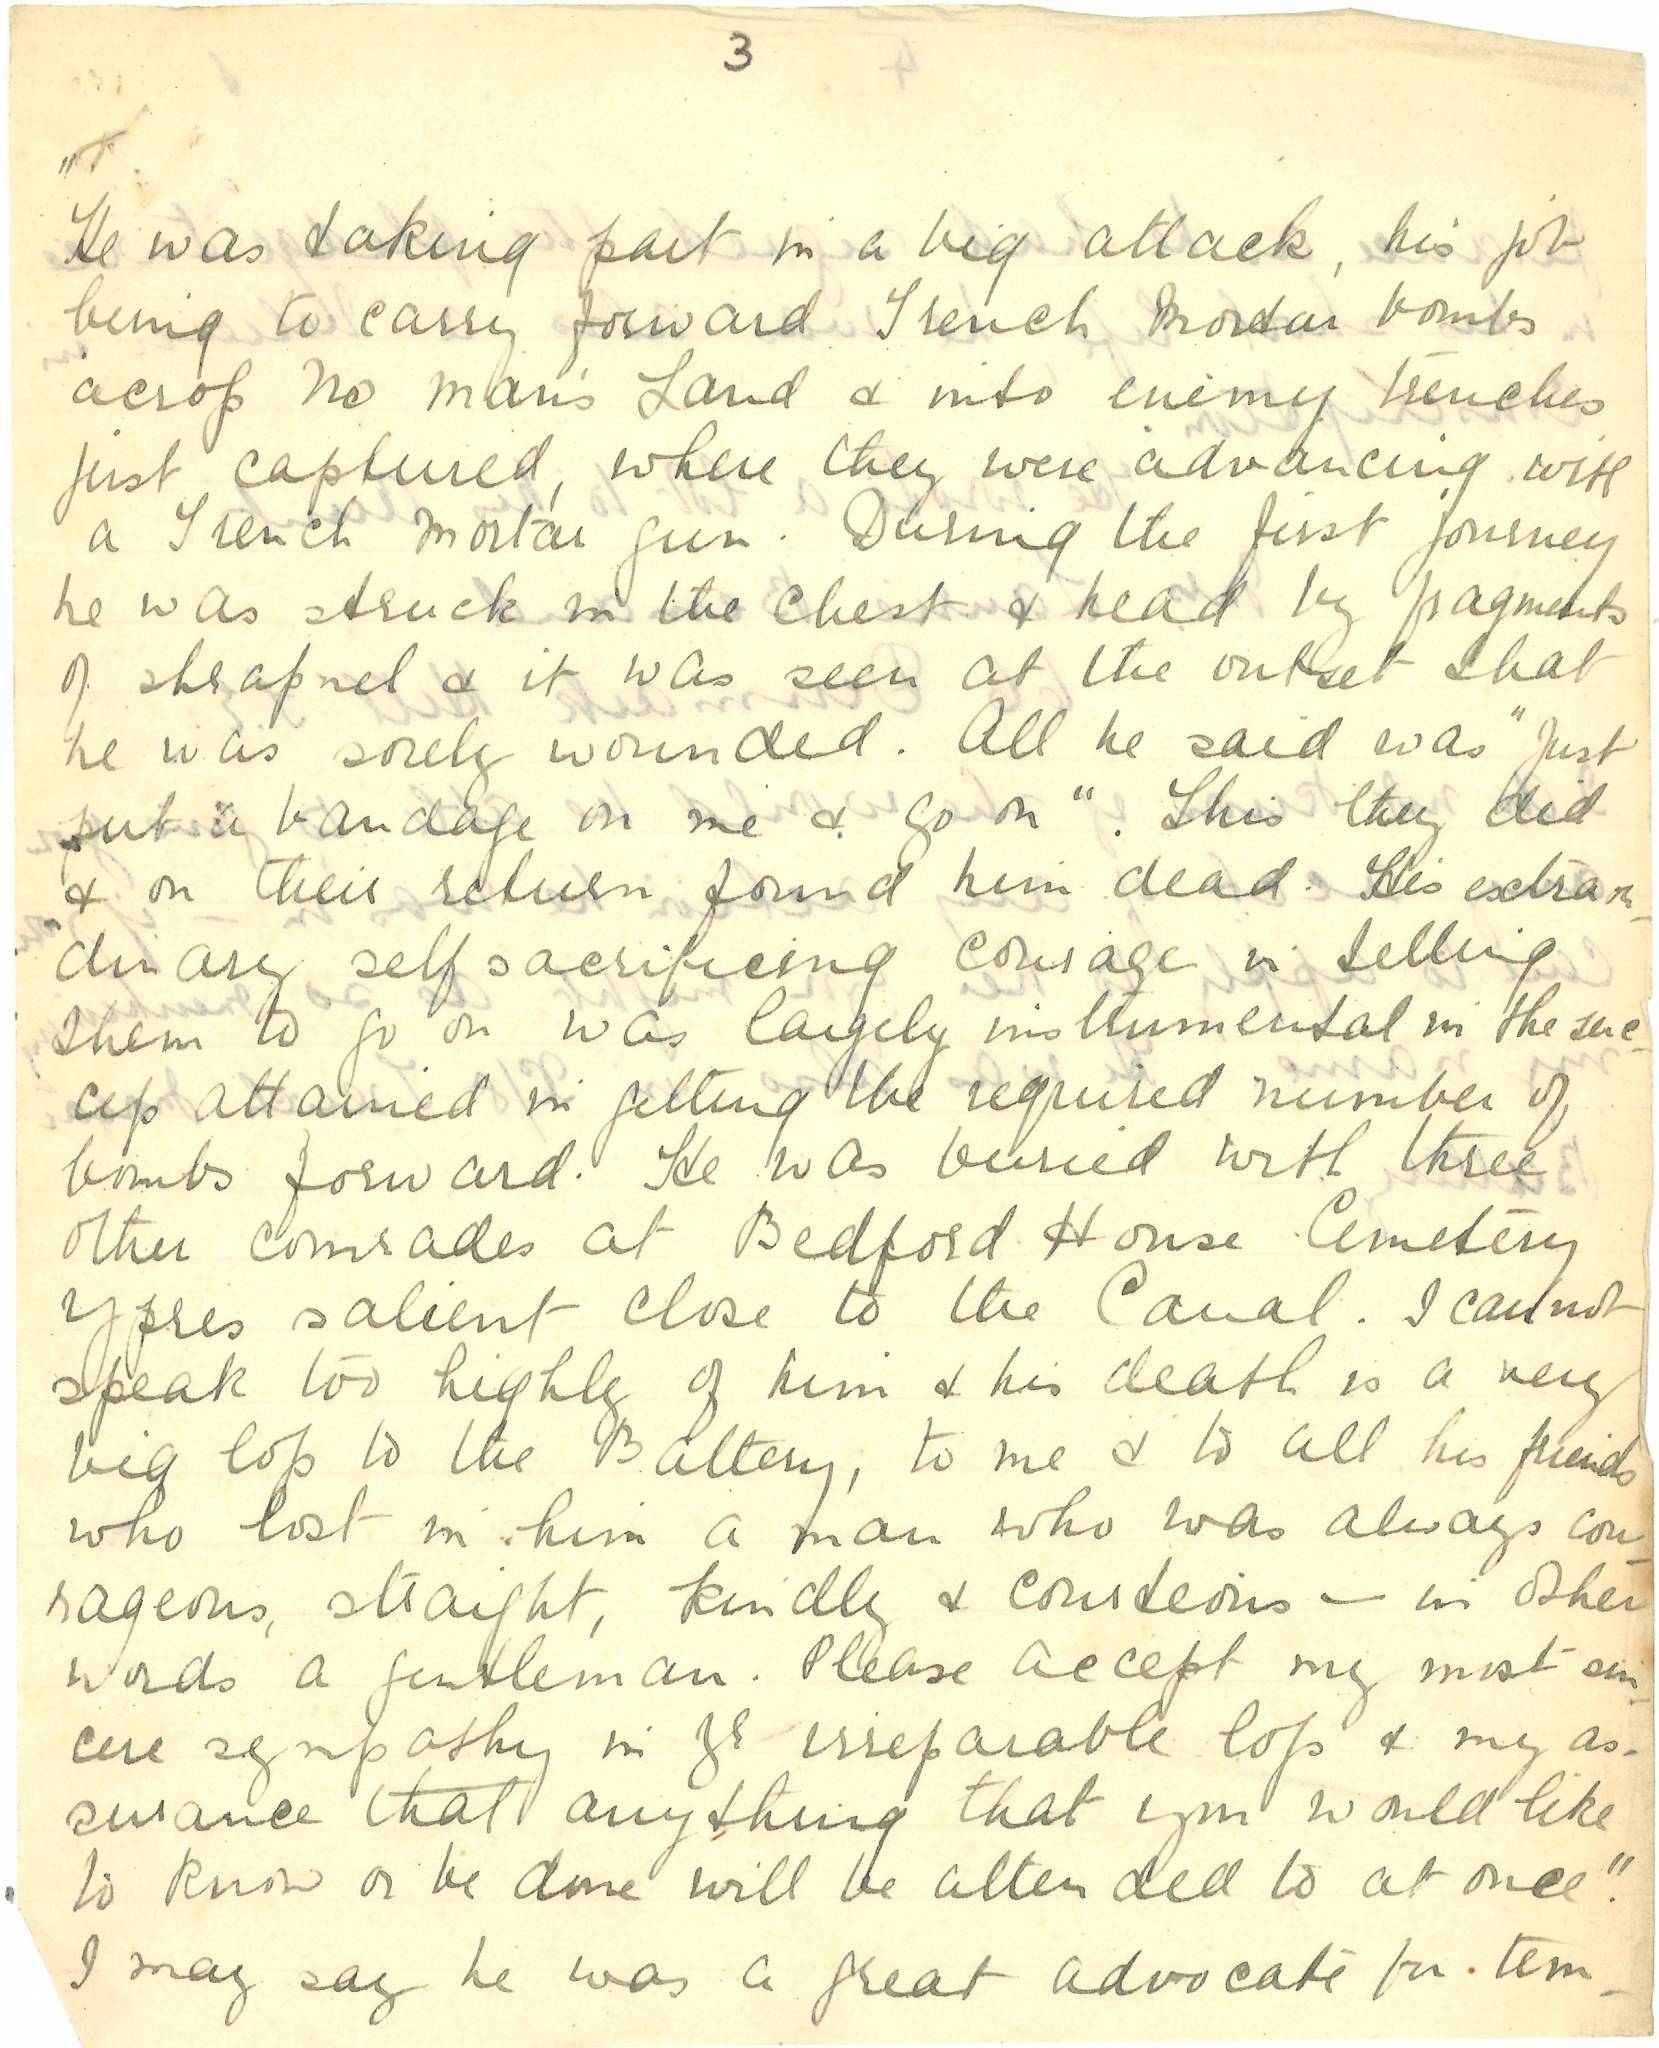 3
"
He was taking part in a big attack, his job
being to carry forward Trench Mortar bombs
acroſs No Man's Land & into enemy trenches
just captured, where they were advancing with
a Trench Mortar gun. During the first journey
he was struck in the chest & head by fragments
of shrapnel & it was seen at the outset that
he was sorely wounded. All he said was "Just
put a bandage on me & go on". This they did
& on their return found him dead. His extraor-
dinary self sacrificing courage in telling
them to go on was largely instrumental in the suc-
ceſs attained in getting the required number of
bombs forward. He was buried with three
other comrades at Bedford House Cemetery
Ypres salient close to the Canal. I cannot
speak too highly of him & his death is a very
big loſs to the Battery, to me & to all his friends
who lost in him a man who was always cou-
rageous, straight, kindly & courteous — in other
words a gentleman. Please accept my most sin-
cere sympathy in yr irreparable loſs & my as-
surance that anything that you would like
to know or be done will be attended to at once".
I may say he was a great advocate for tem-